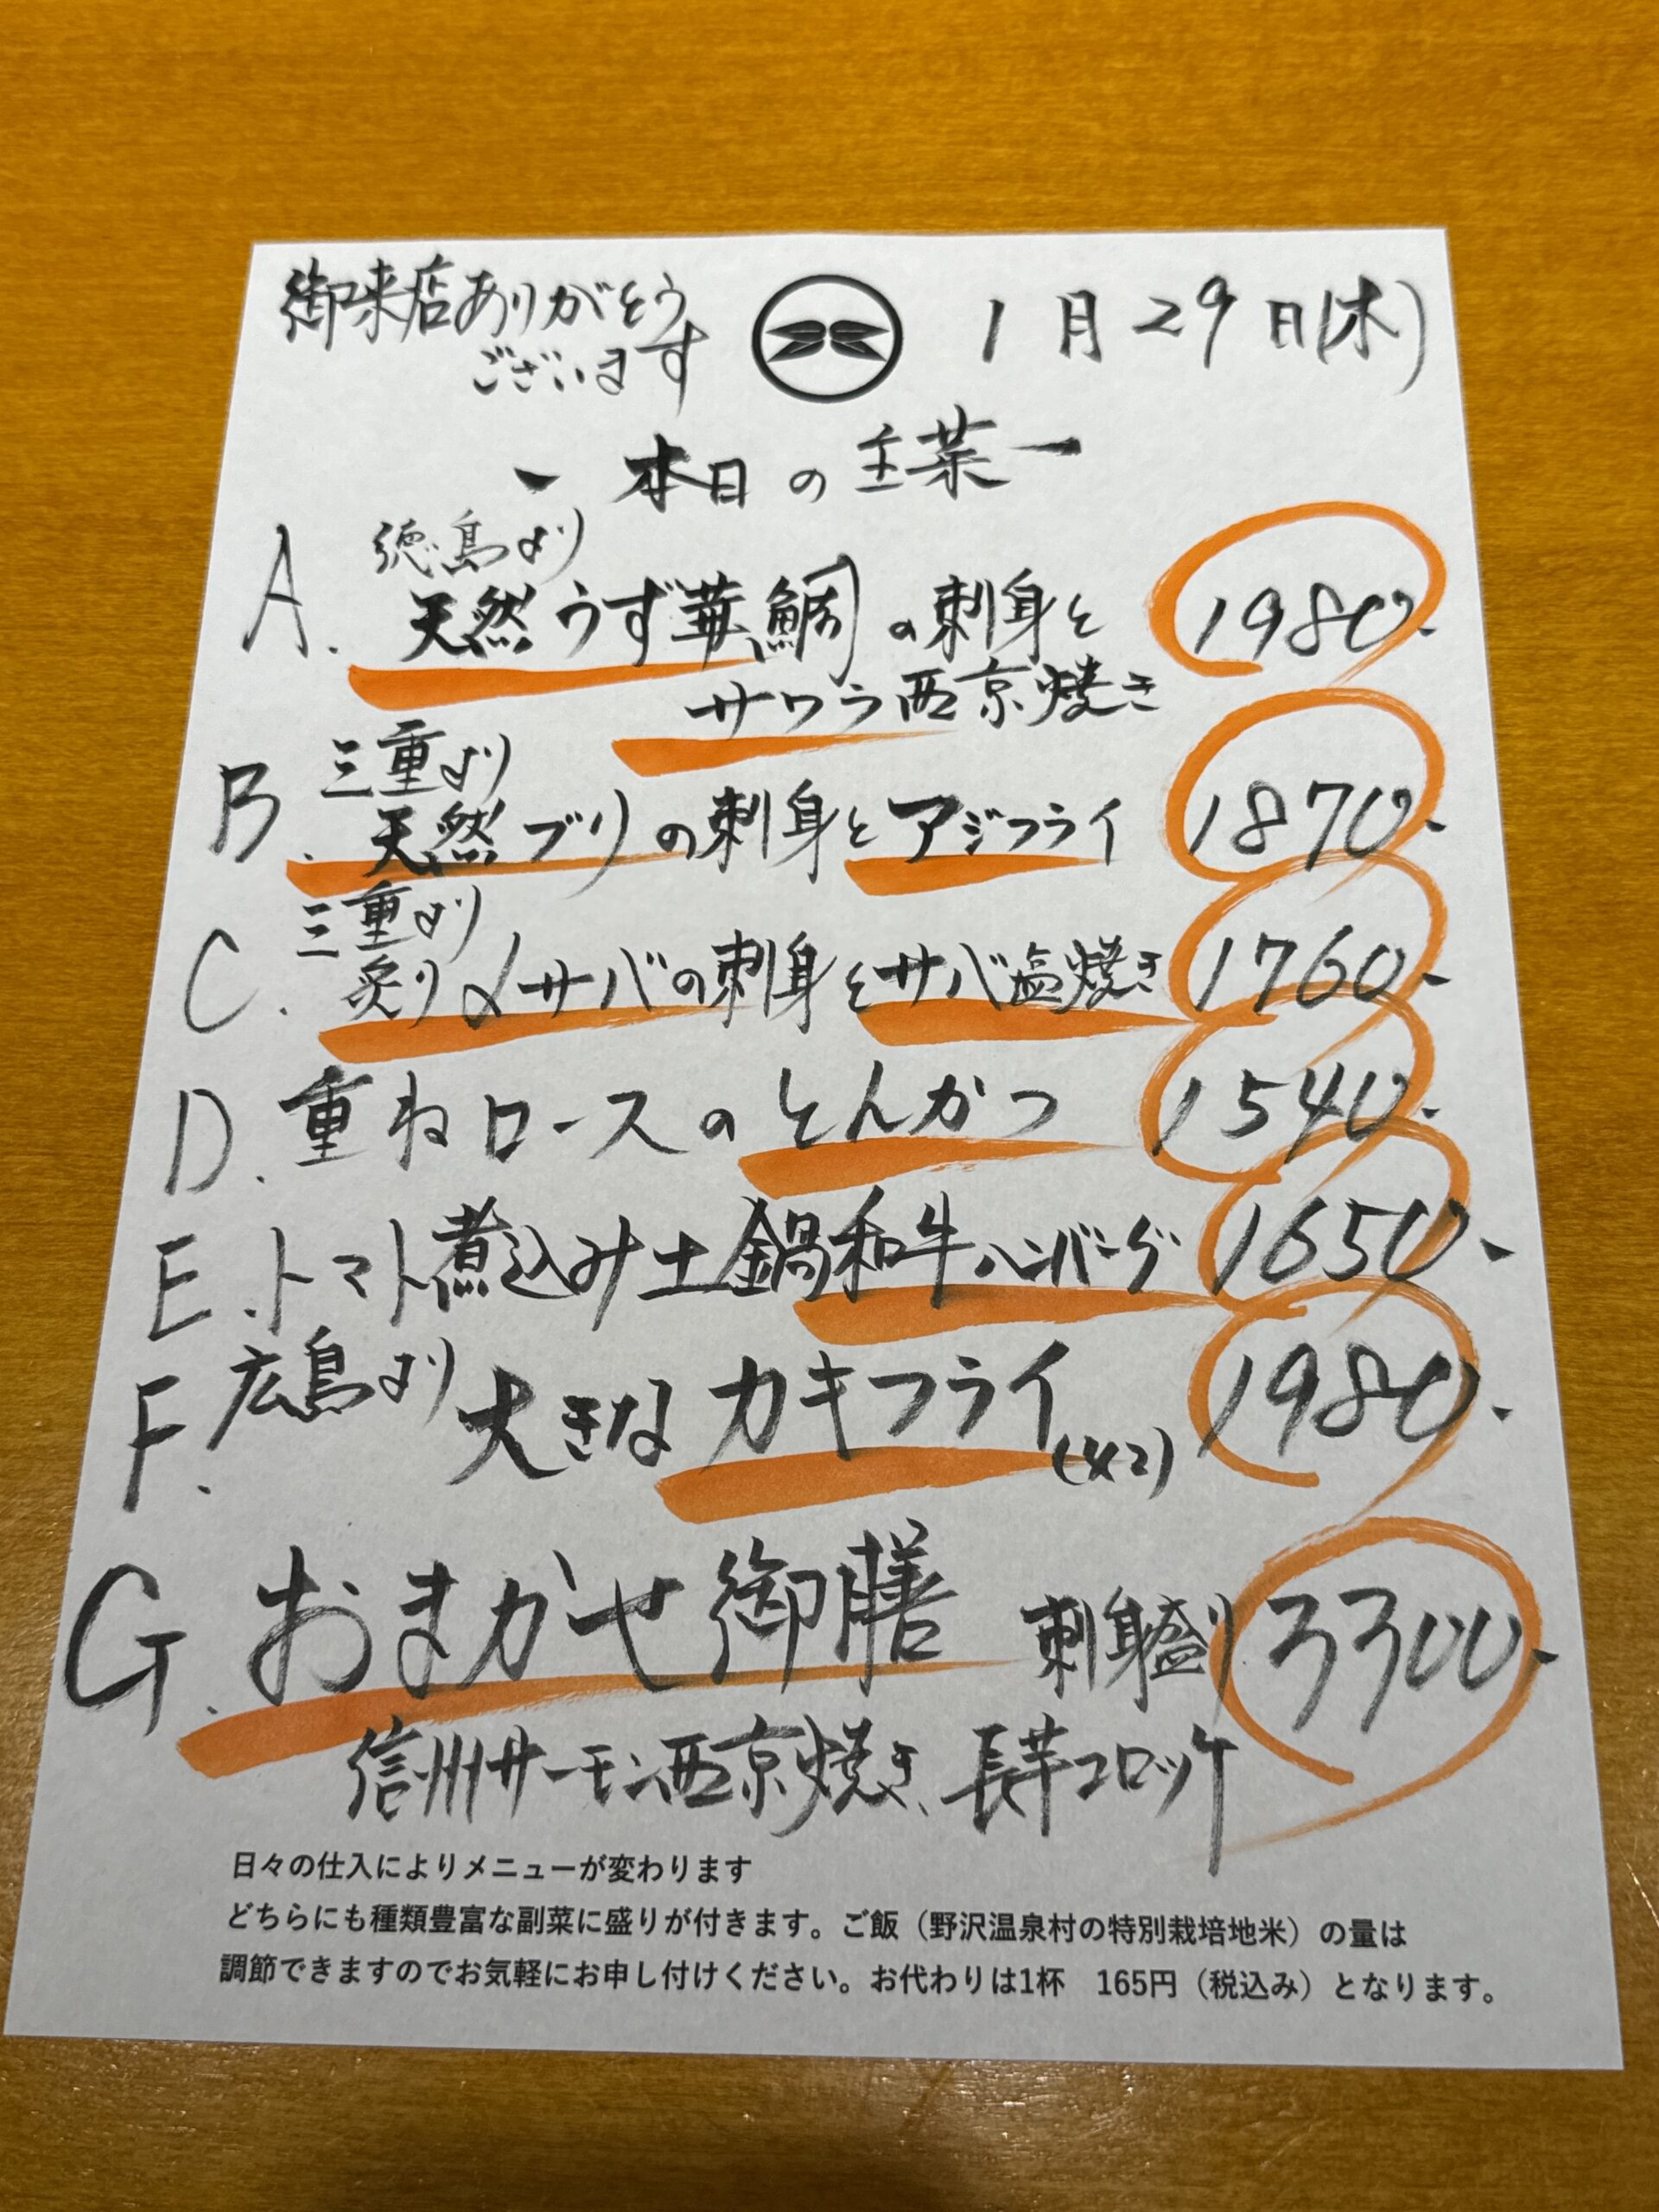 御来店ありがとう
ございます
1月29日(木)
ー 本日の主菜 ー
徳島より
A. 天然うず華鯛の刺身と 1980-
サワラ西京焼き
三重より
B. 天然ブリの刺身とアジフライ 1870-
三重より
C. 炙り〆サバの刺身とサバ塩焼き 1760-
D. 重ねロースのとんかつ 1540-
E. トマト煮込み土鍋和牛ハンバーグ 1650-
F. 広島より 大きなカキフライ(4コ) 1980-
G. おまかせ御膳 刺身盛り 3300-
信州サーモン西京焼き、長芋コロッケ
日々の仕入によりメニューが変わります
どちらにも種類豊富な副菜に盛りが付きます。ご飯（野沢温泉村の特別栽培地米）の量は
調節できますのでお気軽にお申し付けください。お代わりは1杯　165円（税込み）となります。